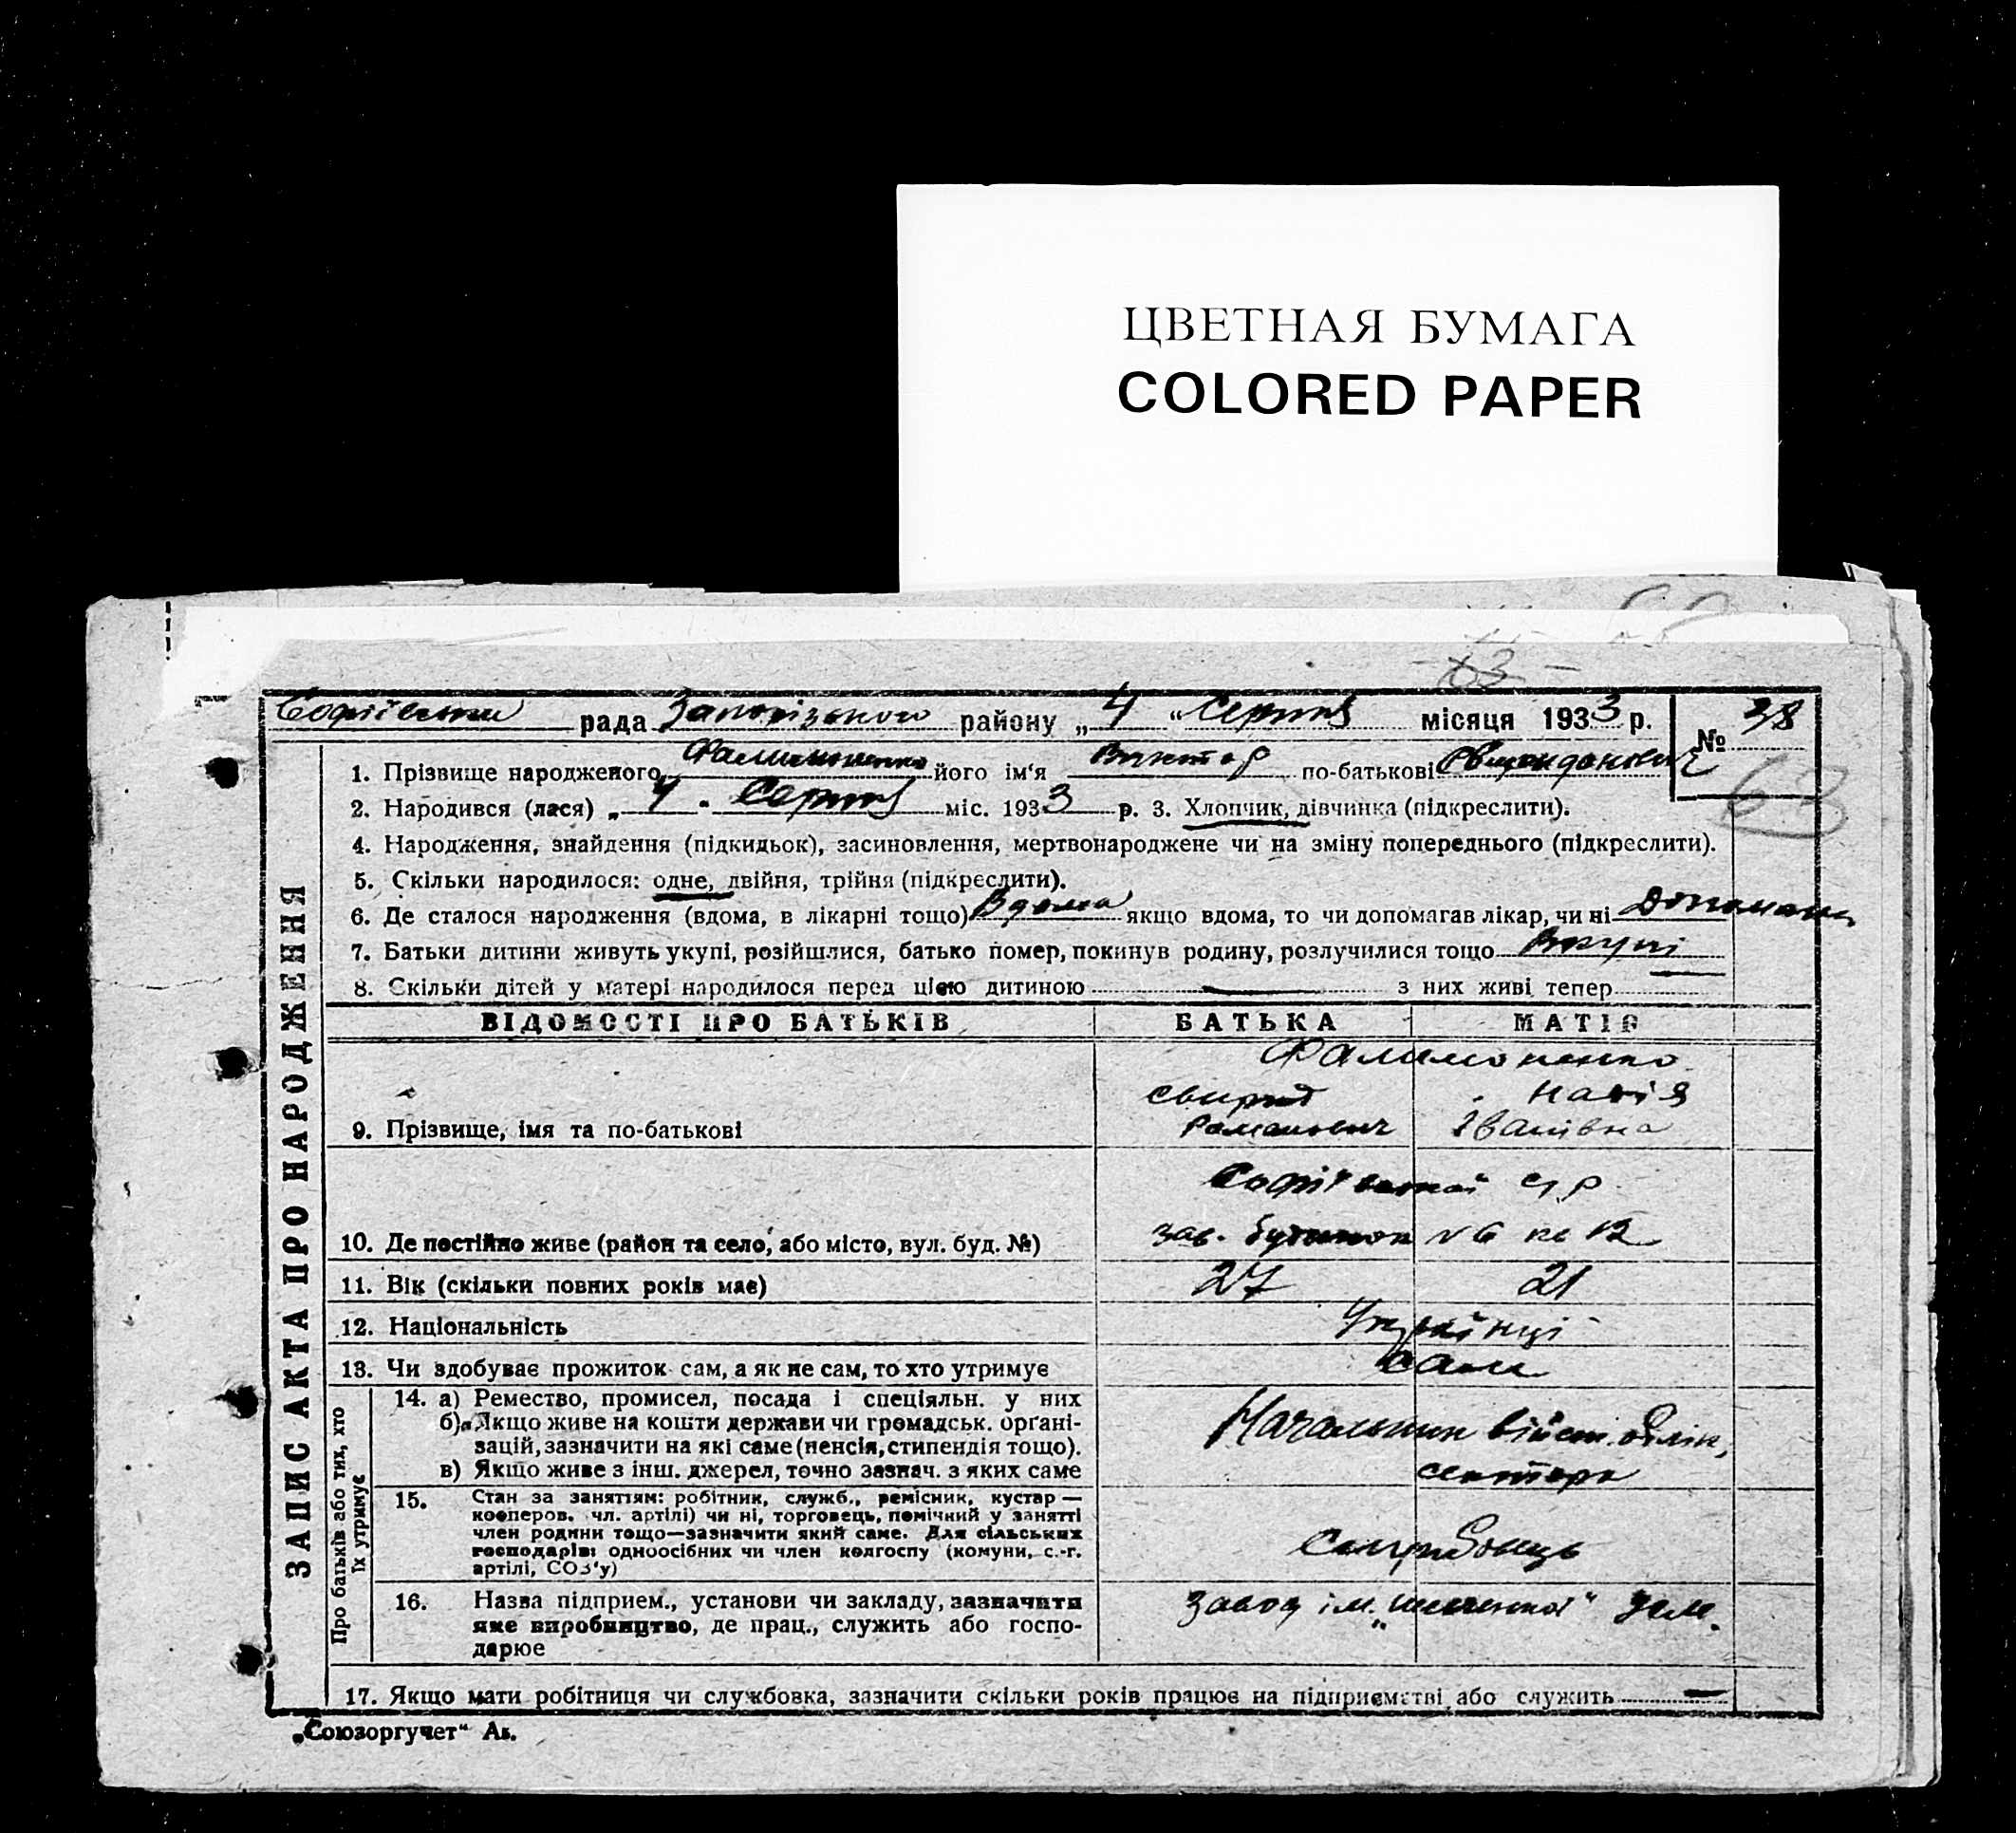 ЦВЕТНАЯ БУМАГА
COLORED PAPER
63
Софіївська рада Запорізького району „4 “ Серпня місяця 1933 р. № 38
1. Прізвище народженого Филимоненко його ім‘я Виктор по-батькові
63
2. Народився (лася) „ 4 . Серпня міс. 1933 р. 3. Хлопчик, дівчинка (підкреслити).
4. Народження, знайдення (підкидьок), засиновлення, мертвонароджене чи на зміну попереднього (підкреслити).
5. Скільки народилося: одне, двійня, трійня (підкреслити).
6. Де сталося народження (вдома, в лікарні тощо) Вдома якщо вдома, то чи допомагав лікар, чи ні
7. Батьки дитини живуть укупі, розійшлися, батько помер, покинув родину, розлучилися тощо Вкупі
8. Скільки дітей у матері народилося перед цією дитиною — з них живі тепер —
ЗАПИС АКТА ПРО НАРОДЖЕННЯ
ВІДОМОСТІ ПРО БАТЬКІВ БАТЬКА МАТІР
Филимоненко
Свирид Надія
9. Прізвище, імя та по-батькові Романович Іванівна
Софіївской с/р
10. Де постійно живе (район та село, або місто, вул. буд. №) зав. будинок № 6 кв 12
11. Вік (скільки повних років має) 27 21
12. Національність Українці
13. Чи здобуває прожиток сам, а як не сам, то хто утримує сам
Про батьків або тих, хто
їх утримує
14. а) Ремество, промисел, посада і спеціяльн. у них
б) Якщо живе на кошти держави чи громадськ. орґані-
зацій, зазначити на які саме (пенсія, стипендія тощо). Начальник війст. облік,
в) Якщо живе з інш. джерел, точно зазнач. з яких саме сектора
15. Стан за заняттям: робітник, служб., ремісник, кустар —
кооперов. чл. артілі) чи ні, торговець, помічний у занятті
член родини тощо—зазначити який саме. Для сільських
господарів: одноосібних чи член колгоспу (комуни, с.-г. Службовець
артілі, СОЗ‘у)
16. Назва підприєм., установи чи закладу, зазначити завод ім.
яке виробництво, де прац., служить або госпо-
дарює
17. Якщо мати робітниця чи службовка, зазначити скільки років працює на підприємстві або служить —
„Союзоргучет“